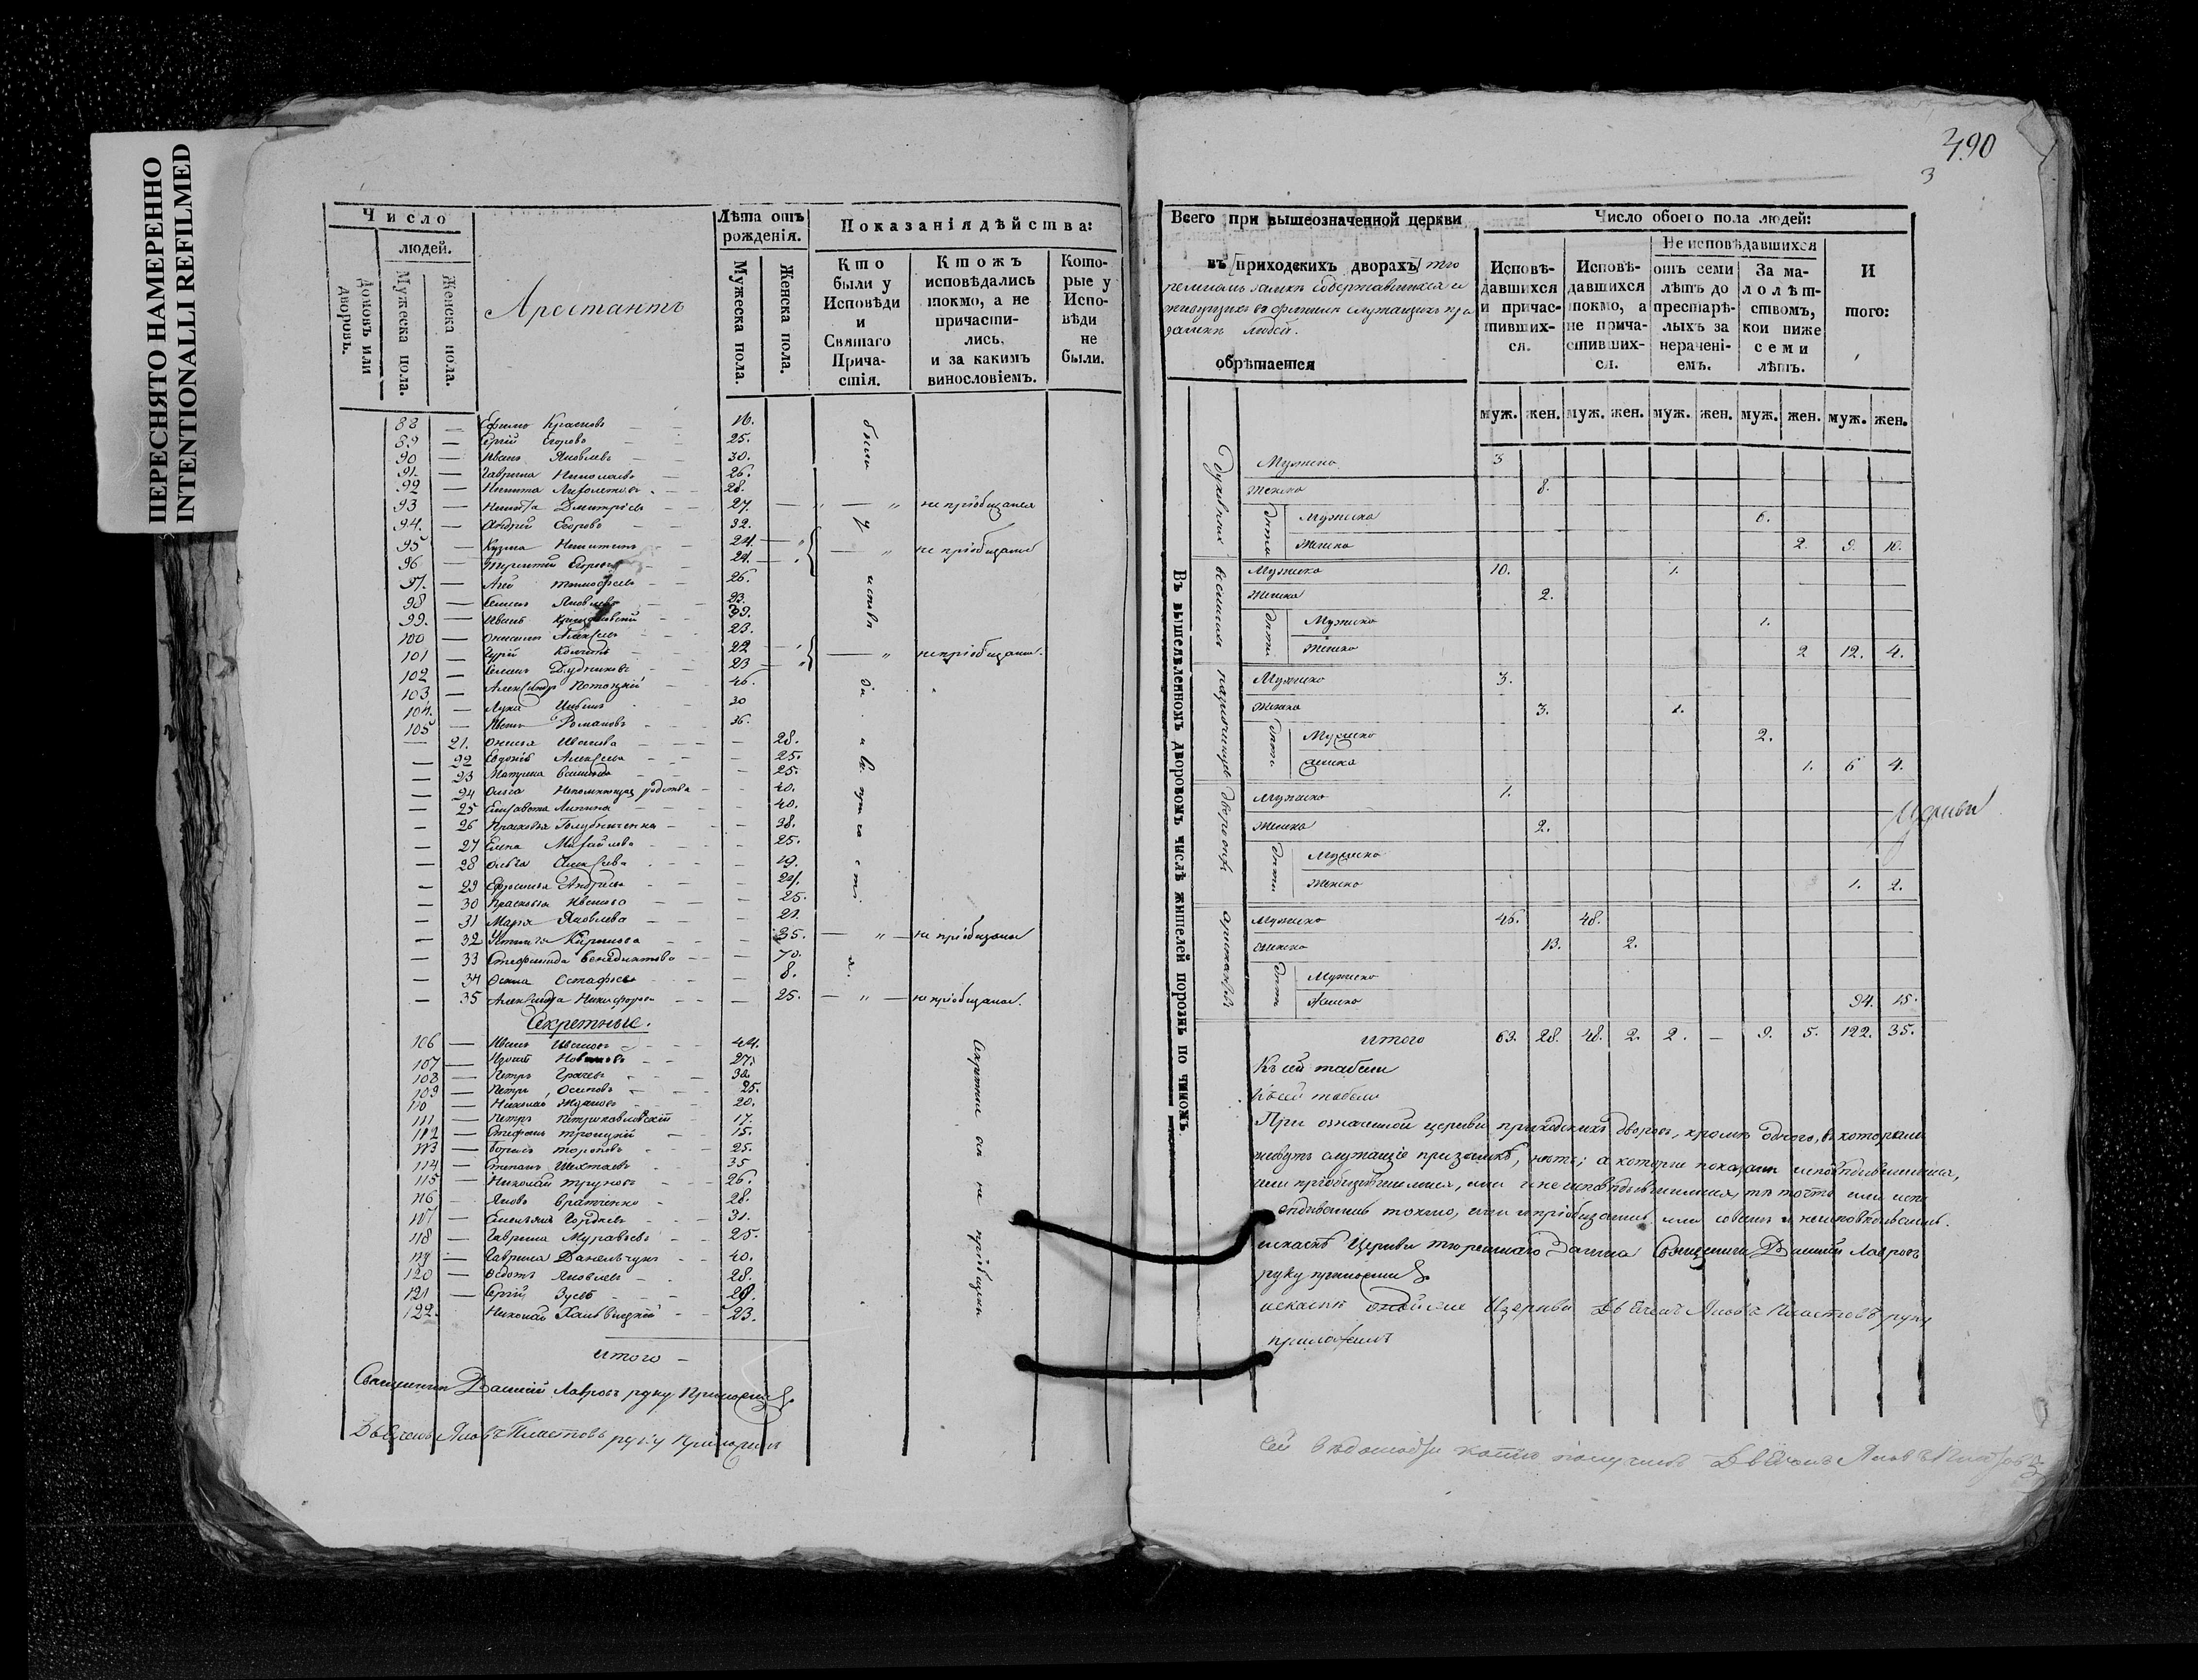 ПЕРЕСНЯТО НАМЕРЕННО
INTENTIONALLI REFILMED
Число
людей.
Домовъ или дворовъ.
Мужеска пола.
Женска пола.
Арестантъ
Лѣта отъ рожденія.
Мужеска пола.
Женска пола.
Показанія дѣйства:
Кто были у Исповѣди и Святаго Причастія.
Ктожъ исповѣдались токмо, а не причастились, и за какимъ винословіемъ.
Которые у Исповѣди не были.
88 — Ефимъ Красновъ — — 16.
89 — Сергій Егоровъ — 25.
90 — Иванъ Яковлевъ — 30.
91 — Гаврила Николаевъ — 26.
92 — Никита — 28.
93 — Никита Дмитріевъ 27. — " — " не пріобщался
94. — Андрей Егоровъ — 32.
95 — Кузма Никитинъ 24. — " не пріобщались
96 — Терентій Егоровъ 24.
97. — Тимофеевъ 26.
98 — Семенъ Яковлевъ 23.
99. — Иванъ 39.
100 — Алексѣевъ 23.
101 — 22 — " не пріобщались.
102 — Семенъ Дудниковъ 23
103 — Александръ Потоцкій 46.
104. — Лука 30
105 — Иванъ Романовъ 36.
— 21. Ивановна — 28.
— 22 Евдокія Алексѣева — 25.
— 23 Матрена — 25.
— 24 Ольга Непомнющая родства — 40.
— 25 Елисавета Липина — 40.
— 26 Прасковья Голубниченка — 38.
— 27 Елена Михайлова — 25.
— 28 Ольга Алексѣева — 19.
— 29 Ефросинья Андреева — 24.
— 30 Прасковья Иванова — 25.
— 31 Марья Яковлева — 22.
— 32 Устинья Кирилова — 35. — " — не пріобщалась
— 33 Стефанида Бенедиктова — 70.
— 34 Остафьева — 8.
— 35 Александра Никифорова — 25. — " — не пріобщалась.
Секретные.
106 — Иванъ Ивановъ — 44.
107 — Новиковъ — 27.
108 — Петръ Грачевъ — 32.
109 — Петръ Осиповъ — 25.
110 — Николай Ждановъ — 20.
111 — Петръ Петрикавловскій 17.
112 — Стефанъ Троицкій — 15.
113 — Борисъ Тороповъ — 25.
114 — Степанъ Шехтаевъ 35
115 — Николай Труновъ 26.
116 — Яковъ Братченко 28.
117 — Гордѣевъ 31.
118 — Гаврила Муравьевъ 25.
119 — Гаврила Данельчукъ 40.
120 — Федотъ Яковлевъ 28.
121 — Сергій Зуевъ 28.
122. Николай 23.
Секретные не пріобщены
итого —
Священникъ Василій Лавровъ руку приложилъ
Дьячекъ Яковъ Пластовъ руку приложилъ
490
3
Всего при вышеозначенной церкви
въ [приходскихъ дворахъ] тю
ремномъ замкѣ содержавшихся и
живущихъ во флигилѣ служащихъ при
замкѣ людей.
обрѣтается
Число обоего пола людей:
Исповѣдавшихся и причастившихся.
Исповѣдавшихся токмо, а не причастившихся.
Не исповѣдавшихся
отъ семи лѣтъ до престарѣлыхъ за нераченіемъ.
За малолѣтствомъ, кои ниже семи лѣтъ.
Итого:
муж. жен. муж. жен. муж. жен. муж. жен. муж. жен.
Въ вышеявленномъ дворовомъ числѣ жителей порознь по чиномъ.
Духовныхъ
Мужеска 3
Женска 8.
Дѣти
Мужска 6.
Женска 2. 9. 10.
военныхъ
Мужска 10. 1.
Женска 2.
Дѣти
Мужска 1.
Женска 2 12. 4.
Мужска 3.
Женска 3. 1.
Дѣти
Мужска 2.
Женска 1. 6 4.
Мужска 1.
Женска 2.
Дѣти
Мужска
Женска 1. 2.
арестантовъ
Мужска 46. 48.
Женска 13. 2.
Дѣти
Мужска
Женска 94. 15.
итого 63. 28. 48. 2. 2. — 9. 5. 122. 35.
Къ сей табели
Къ сей табели
При означенной церкви приходскихъ дворовъ, кромѣ одного, въ которомъ
живутъ служащіе при замкѣ, нѣтъ; а которые показаны исповѣдывавшимися,
или пріобщившимися, или и не исповѣдывавшимися, тѣ точно или испо
вѣдывались токмо, или и пріобщались или совсѣмъ не исповѣдывались.
Церкви тюремнаго замка Священникъ Василій Лавровъ
руку приложилъ
церкви Дьячекъ Яковъ Пластовъ руку
приложилъ
сей вѣдомости копію получилъ Дьячекъ Яковъ Пластовъ